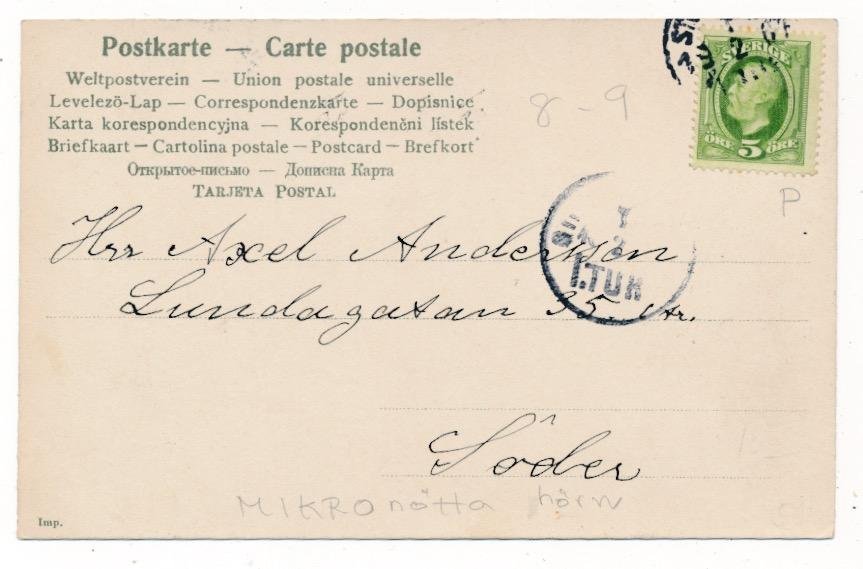 Postkarte — Carte postale
Weltpostverein — Union postale universelle
Levelezö-Lap — Correspondenzkarte — Dopisnice
Karta korespondencyjna — Korespondenčni lístek
Briefkaart — Cartolina postale — Postcard — Brefkort
Открытое-письмо — Дописна Карта
TARJETA POSTAL
8-9
SVERIGE
ÖRE 5 ÖRE
P
Herr Axel Andersson
Lundagatan 35.
Söder
1.TUR
MIKRO nötta hörn
Imp.